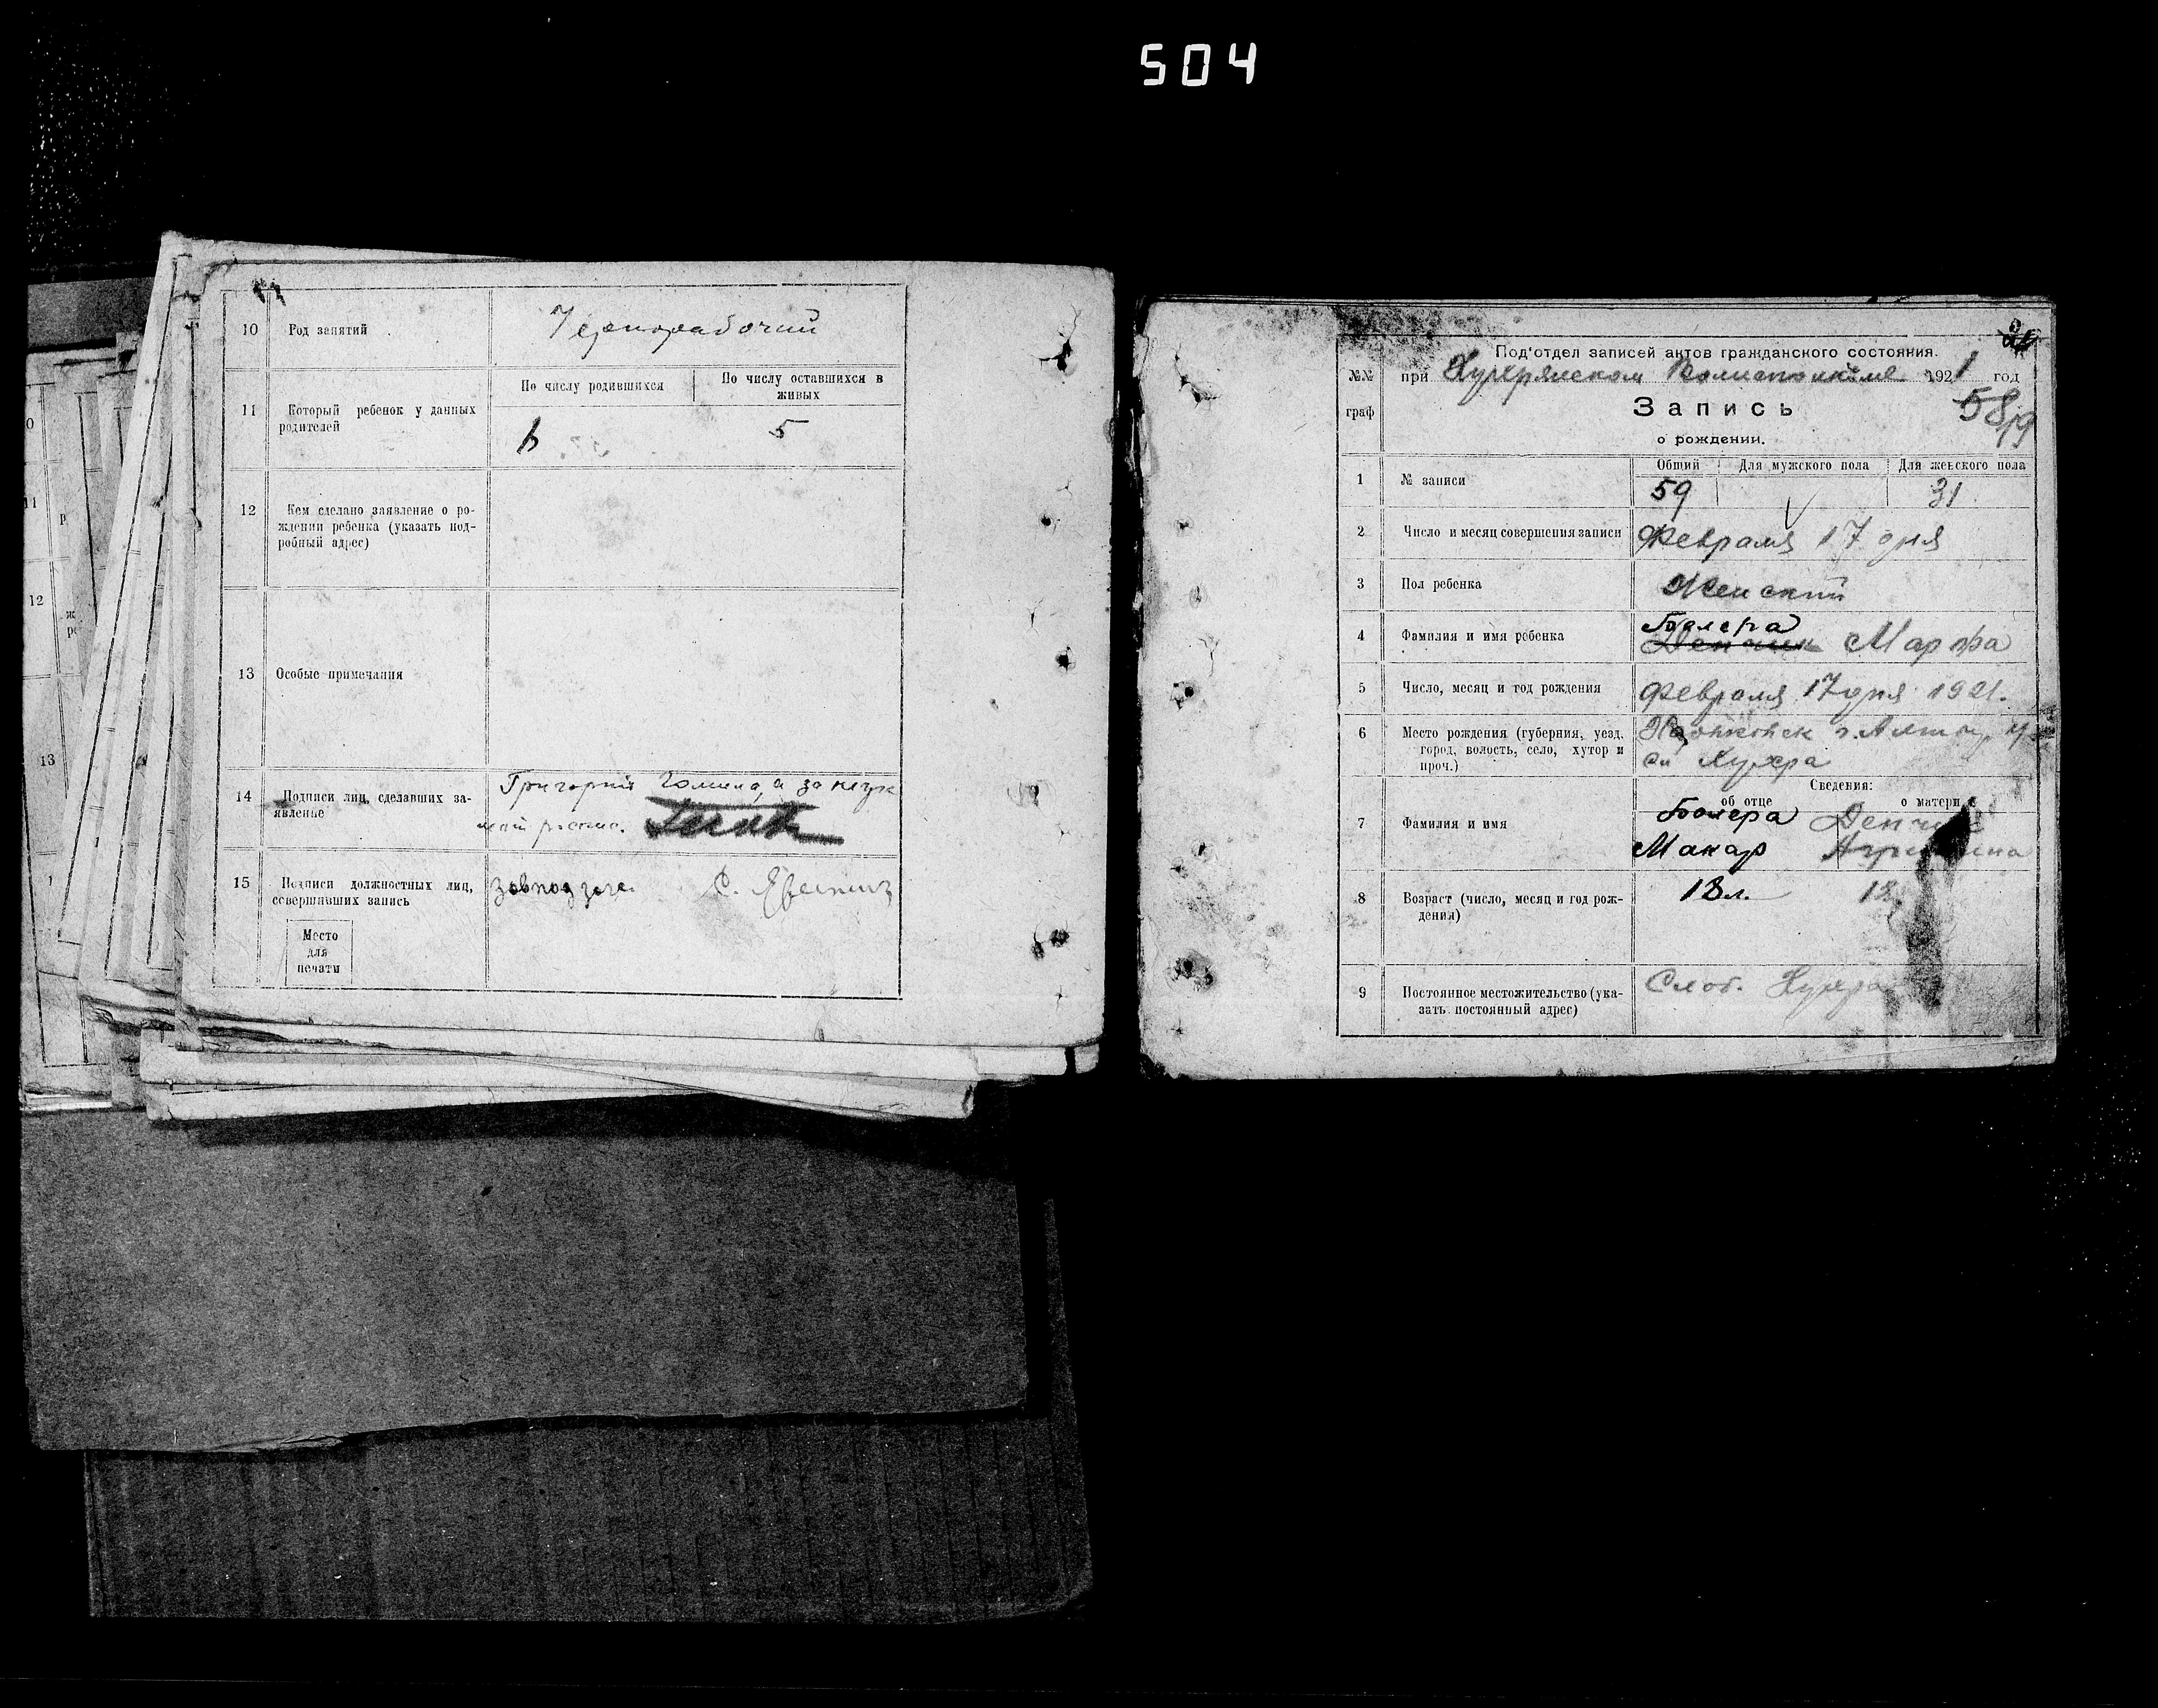 504
10 Род занятий Чернорабочий
11 Который ребенок у данных родителей
По числу родившихся
По числу оставшихся в живых
6 5
12 Кем сделано заявление о рождении ребенка (указать подробный адрес)
13 Особые примечания
14 Подписи лиц, сделавших заявление
Григорий
15 Подписи должностных лиц, совершивших запись
Место
для
печати
0
11
12
13
Под'отдел записей актов гражданского состояния.
№№ граф
при Хухрянском Волисполкоме 1921 год
Запись
о рождении.
Общий Для мужского пола Для женского пола
1 № записи 59 31
2 Число и месяц совершения записи Февраля 17 дня
3 Пол ребенка Женский
4 Фамилия и имя ребенка Марфа
5 Число, месяц и год рождения Февраля 17 дня 1921.
6 Место рождения (губерния, уезд,
город, волость, село, хутор и
проч.)
Хухра
Сведения:
об отце о матери
7 Фамилия и имя
Макар
8 Возраст (число, месяц и год рождения) 18л. 18
9 Постоянное местожительство (указать постоянный адрес) Слоб. Хухра